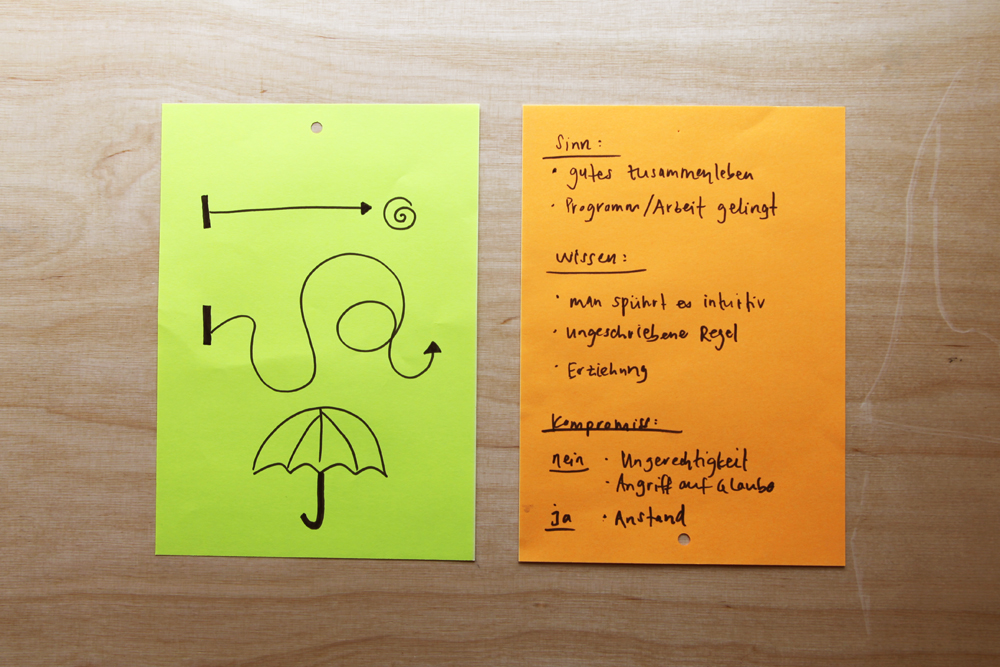 Sinn:
· gutes Zusammenleben
· Programm/Arbeit gelingt
Wissen:
· man spührt es intuitiv
· ungeschriebene Regel
· Erziehung
Kompromiss:
nein · Ungerechtigkeit
· Angriff auf Glaube
ja · Anstand